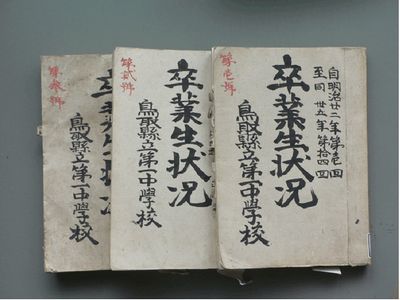 第壱輯
自明治廿二年第壱回
至同 卅五年第拾四回
卒業生状况
鳥取縣立第一中學校
第弐輯
卒業生状况
鳥取縣立第一中學校
第参輯
卒業生状况
鳥取縣立第一中學校